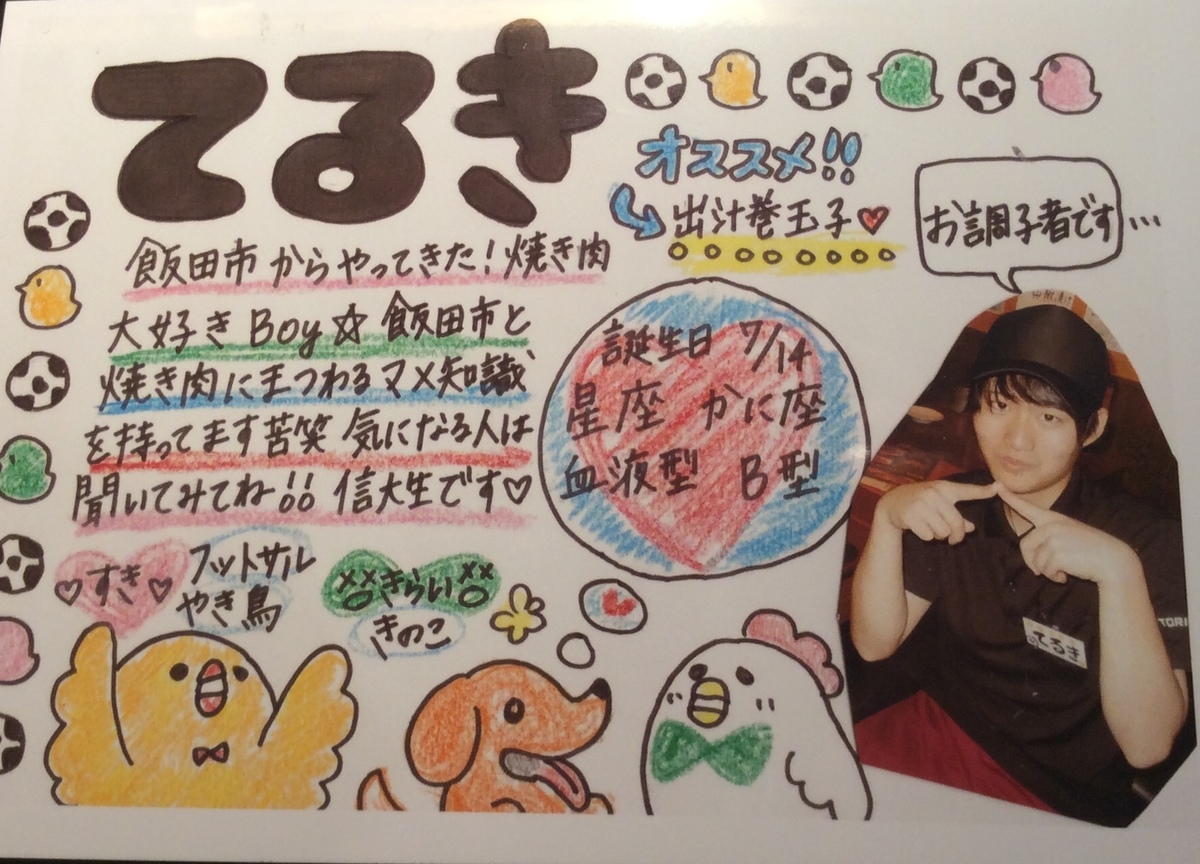 てるき
オススメ!!
出汁巻玉子♥
お調子者です…
飯田市からやってきた!焼き肉
大好きBoy☆飯田市と
焼き肉にまつわるマメ知識
を持ってます苦笑 気になる人は
聞いてみてね!! 信大生です♡
誕生日 7/14
星座 かに座
血液型 B型
♡すき♡
フットサル
やき鳥
きらい
きのこ
てるき
TORI